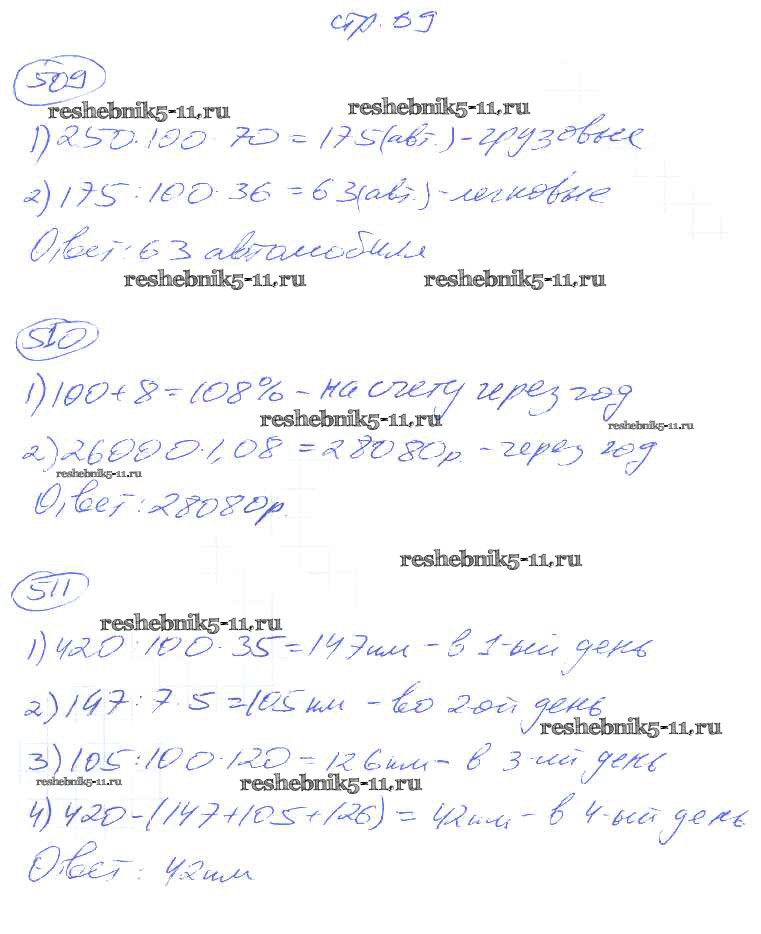 стр. 89
509
reshebnik5-11.ru reshebnik5-11.ru
1) 250:100·70=175(авт.)-грузовые
2) 175:100·36=63(авт.)-легковые
Ответ: 63 автомобиля
reshebnik5-11.ru reshebnik5-11.ru
510
1) 100+8=108% - на счету через год
reshebnik5-11.ru reshebnik5-11.ru
2) 26000·1,08=28080р. - через год
reshebnik5-11.ru
Ответ: 28080р.
reshebnik5-11.ru
511
reshebnik5-11.ru
1) 420:100·35=147км - в 1-ый день
2) 147:7·5=105км - во 2ой день
reshebnik5-11.ru
3) 105:100·120=126км - в 3-ий день
reshebnik5-11.ru reshebnik5-11.ru
4) 420-(147+105+126)=42км - в 4-ый день
Ответ: 42км